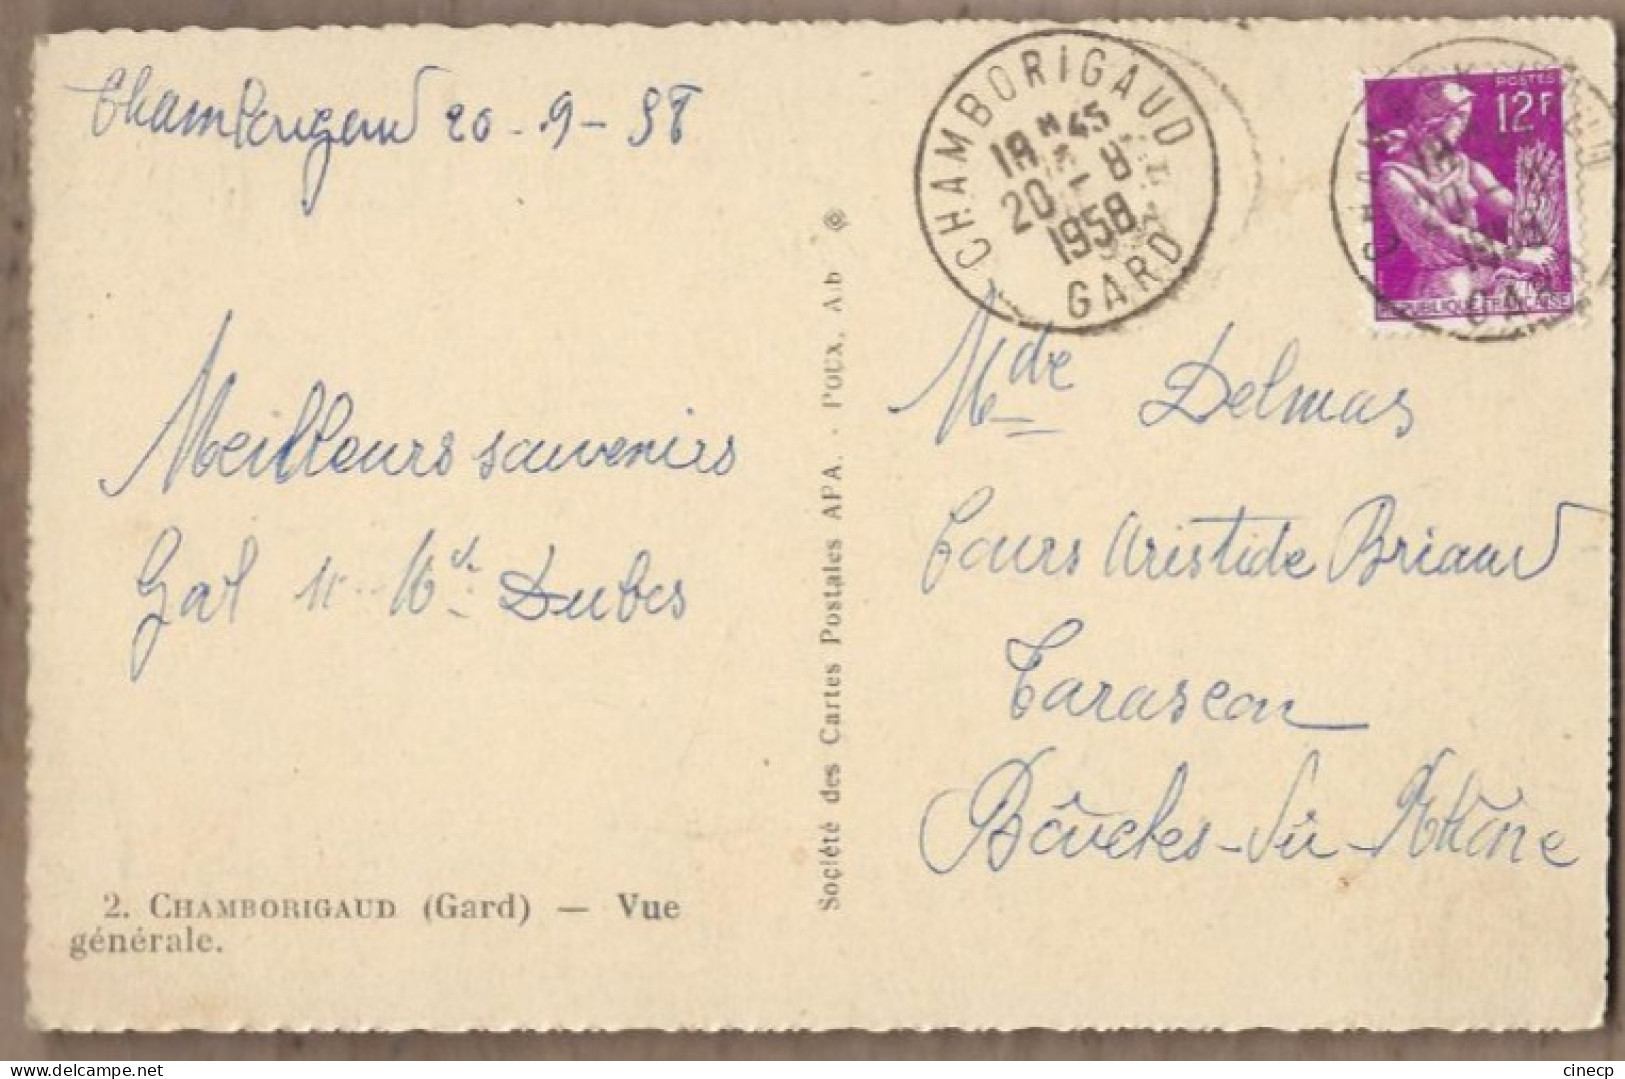 Chamborigaud 20-9-58
Meilleurs souvenirs
Dubes
2. CHAMBORIGAUD (Gard) — Vue
générale.
Société des Cartes Postales APA. - POUX, Alb
CHAMBORIGAUD
18 H 45
20 - 8
1958
GARD
POSTES
12F
REPUBLIQUE FRANÇAISE
Mde Delmas
Cours Aristide Briand
Tarascon
Bouches-du-Rhône
cinecp